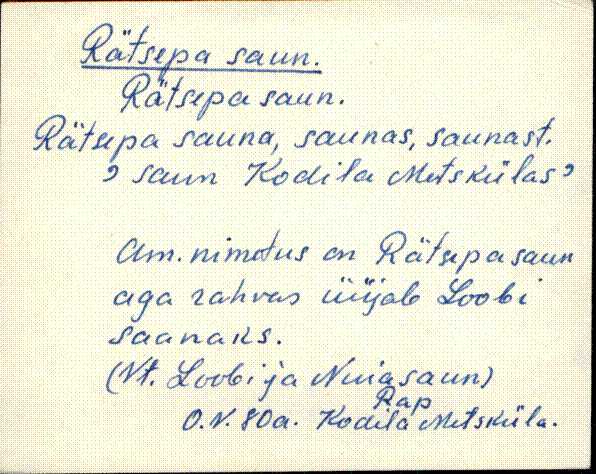 Rätsepa saun.
Rätsepa saun.
Rätsepa sauna, saunas, saunast.
, saun Kodila Metskülas,
Am. nimetus on Rätsepa saun
aga rahvas üüjab Loobi
saanaks.
(Vt. Loobi ja Nuia saun)
Rap
O.V. 80a. Kodila Metsküla.